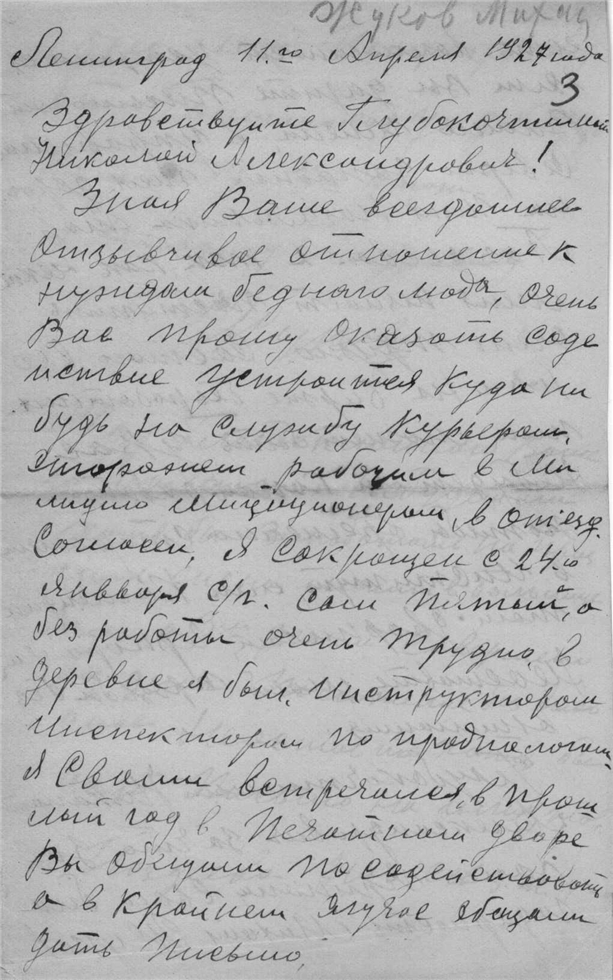 Жуков Михаи
Ленинград 11.го Апреля 1927 года
3
Здравствуите Глубокочтимый
Николай Александрович!
Зная Ваше всегдашнее
отзывчивое отношение к
нуждам беднаго люда, очень
Вас прошу оказать соде
иствие устроится куда ни
будь на службу Курьером,
сторожем рабочим в Ми
лицию Милиционером, в отезд.
Согласен, я сокращен с 24.го
января с/г. сам Пятый, а
без работы очень трудно, в
деревне я был, Инструктором
Инспектором по продналогам,
я Свами встречался, в прош
лый год в Печатном дворе
Вы обещали посодействовать
а в крайнем случае обещали
дать письмо,